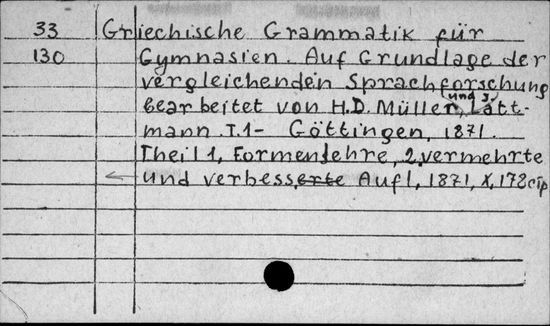 33 Griechische Grammatik für
130 Gymnasien. Auf Grundlage der
vergleichenden Sprachforschung
bearbeitet von H.D. Müller, und J. Latt-
mann. T.1- Göttingen, 1871.
Theil 1, Formenlehre, 2, vermehrte
und verbesserte Aufl, 1871, X, 178 cip